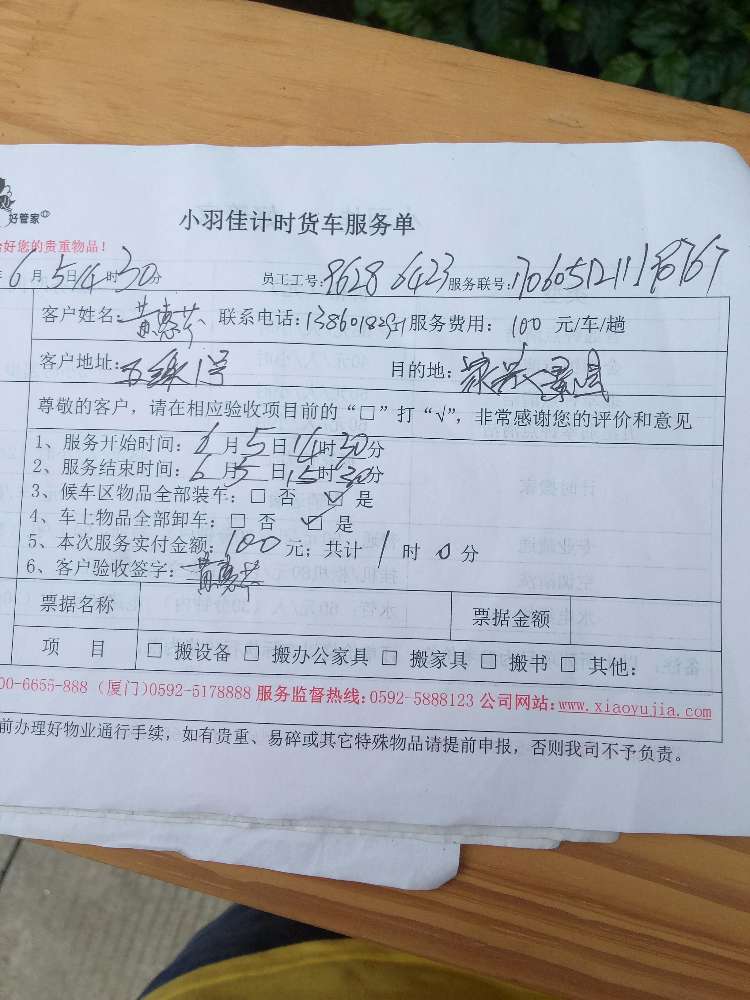 好管家
小羽佳计时货车服务单
给好您的贵重物品！
6月5日14时30分 员工工号：8628 6423 服务联号：
客户姓名： 联系电话： 服务费用：100 元/车/趟
客户地址： 目的地：
尊敬的客户，请在相应验收项目前的“□”打“√”，非常感谢您的评价和意见
1、服务开始时间：6月5日14时30分
2、服务结束时间：6月5日15时30分
3、候车区物品全部装车：□ 否 ☑ 是
4、车上物品全部卸车：□ 否 ☑ 是
5、本次服务实付金额：100元；共计 1 时 0 分
6、客户验收签字：
票据名称 票据金额
项 目 □ 搬设备 □ 搬办公家具 □ 搬家具 □ 搬书 □ 其他：
00-6655-888 (厦门)0592-5178888 服务监督热线：0592-5888123 公司网站：www.xiaoyujia.com
前办理好物业通行手续，如有贵重、易碎或其它特殊物品请提前申报，否则我司不予负责。